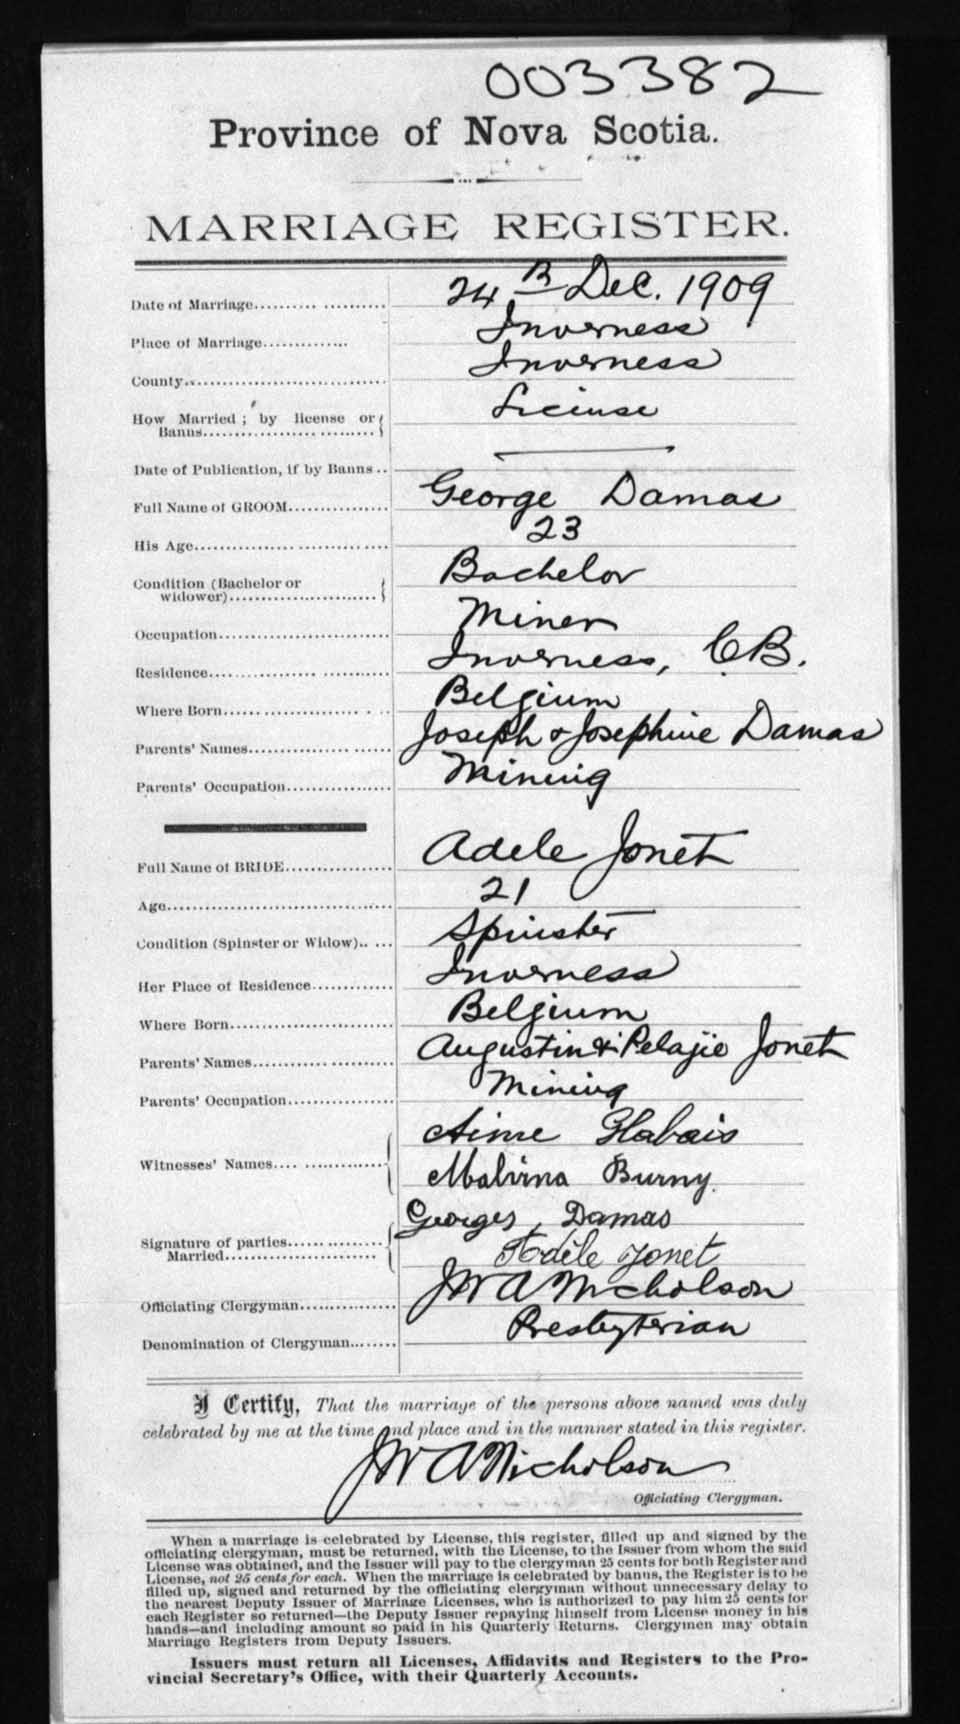 003382
Province of Nova Scotia.
MARRIAGE REGISTER.
Date of Marriage.................... 24th Dec. 1909
Place of Marriage............. Inverness
County.............................. Inverness
How Married; by license or Banns.................... License
Date of Publication, if by Banns..
Full Name of GROOM................ George Damas
His Age.............................. 23
Condition (Bachelor or widower)........................ Bachelor
Occupation............................ Miner
Residence............................ Inverness, C.B.
Where Born........................ Belgium
Parents' Names...................... Joseph & Josephine Damas
Parents' Occupation................. Mining
Full Name of BRIDE................. Adele Jonet
Age.................................... 21
Condition (Spinster or Widow)..... Spinster
Her Place of Residence............. Inverness
Where Born.......................... Belgium
Parents' Names...................... Augustin & Pelajie Jonet
Parents' Occupation................. Mining
Witnesses' Names.................. Aime Glabais
Malvina Burny.
Signature of parties............... Georges Damas
Married.......................... Adèle Jonet
Officiating Clergyman............... J W A Nicholson
Denomination of Clergyman........ Presbyterian
I Certify, That the marriage of the persons above named was duly
celebrated by me at the time and place and in the manner stated in this register.
J W A Nicholson
Officiating Clergyman.
When a marriage is celebrated by License, this register, filled up and signed by the
officiating clergyman, must be returned, with the License, to the Issuer from whom the said
License was obtained, and the Issuer will pay to the clergyman 25 cents for both Register and
License, not 25 cents for each. When the marriage is celebrated by banns, the Register is to be
filled up, signed and returned by the officiating clergyman without unnecessary delay to
the nearest Deputy Issuer of Marriage Licenses, who is authorized to pay him 25 cents for
each Register so returned—the Deputy Issuer repaying himself from License money in his
hands—and including amount so paid in his Quarterly Returns. Clergymen may obtain
Marriage Registers from Deputy Issuers.
Issuers must return all Licenses, Affidavits and Registers to the Pro-
vincial Secretary's Office, with their Quarterly Accounts.